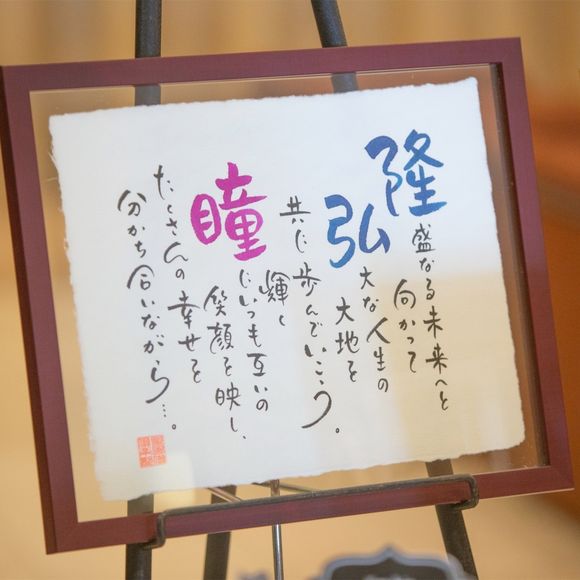 隆盛なる未来へと
向かって
弘大な人生の
大地を
共に歩んでいこう。
輝く
瞳にいつも互いの
笑顔を映し、
たくさんの幸せを
分かち合いながら…。